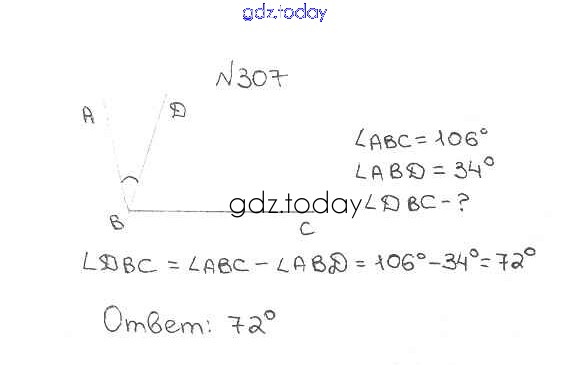 gdz.today
N307
A D
∠ABC = 106°
∠ABD = 34°
gdz.today ∠DBC - ?
B
C
∠DBC = ∠ABC - ∠ABD = 106° - 34° = 72°
Ответ: 72°